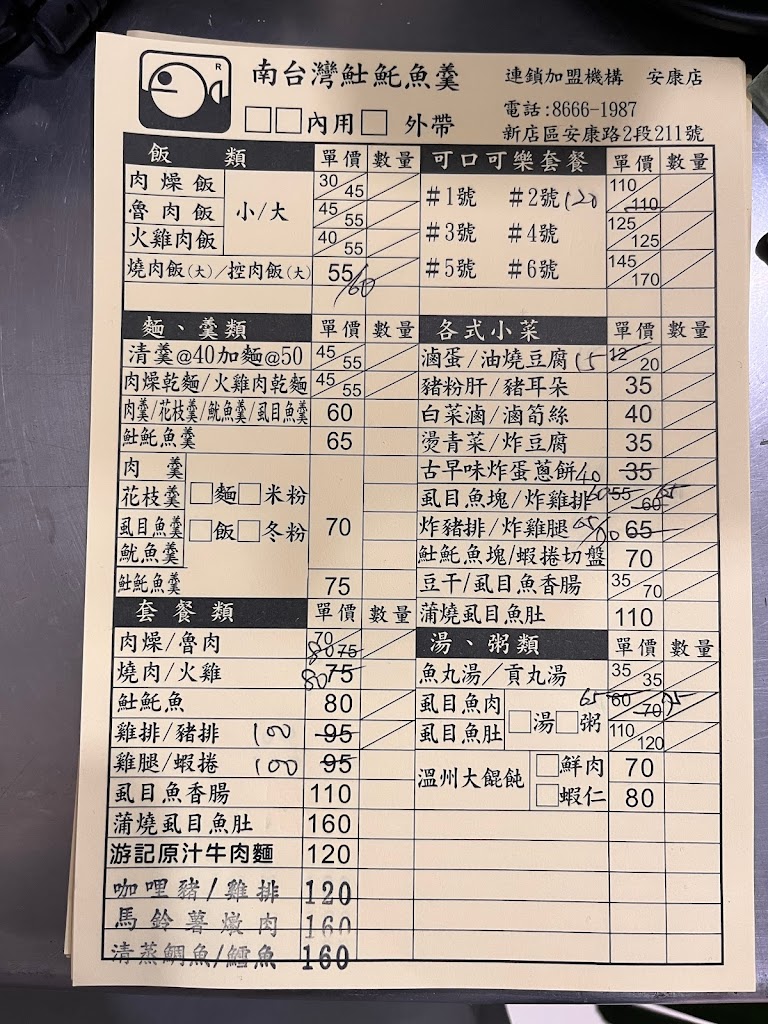 R
南台灣魠魠魚羹
連鎖加盟機構 安康店
□□內用□ 外帶
電話:8666-1987
新店區安康路2段211號
飯類 單價 數量
肉燥飯 小/大 30/45
魯肉飯 45/55
火雞肉飯 40/55
燒肉飯(大)/控肉飯(大) 55/60
麵、羹類 單價 數量
清羹@40加麵@50 45/55
肉燥乾麵/火雞肉乾麵 45/55
肉羹/花枝羹/魷魚羹/虱目魚羹 60
魠魠魚羹 65
肉羹
花枝羹 □麵□米粉
虱目魚羹 □飯□冬粉 70
魷魚羹
魠魠魚羹 75
套餐類 單價 數量
肉燥/魯肉 70 80 75
燒肉/火雞 80 75
魠魠魚 80
雞排/豬排 100 95
雞腿/蝦捲 100 95
虱目魚香腸 110
蒲燒虱目魚肚 160
游記原汁牛肉麵 120
咖哩豬/雞排 120
馬鈴薯燉肉 160
清蒸鯛魚/鱈魚 160
可口可樂套餐 單價 數量
#1號 #2號 120 110/110
#3號 #4號 125/125
#5號 #6號 145/170
各式小菜 單價 數量
滷蛋/油燒豆腐 15 12/20
豬粉肝/豬耳朵 35
白菜滷/滷筍絲 40
燙青菜/炸豆腐 35
古早味炸蛋蔥餅 40 35
虱目魚塊/炸雞排 60 55/60 65
炸豬排/炸雞腿 65
魠魠魚塊/蝦捲切盤 70
豆干/虱目魚香腸 35/70
蒲燒虱目魚肚 110
湯、粥類 單價 數量
魚丸湯/貢丸湯 35/35
虱目魚肉 □湯□粥 65 60/70 75
虱目魚肚 110/120
溫州大餛飩 □鮮肉 70
□蝦仁 80